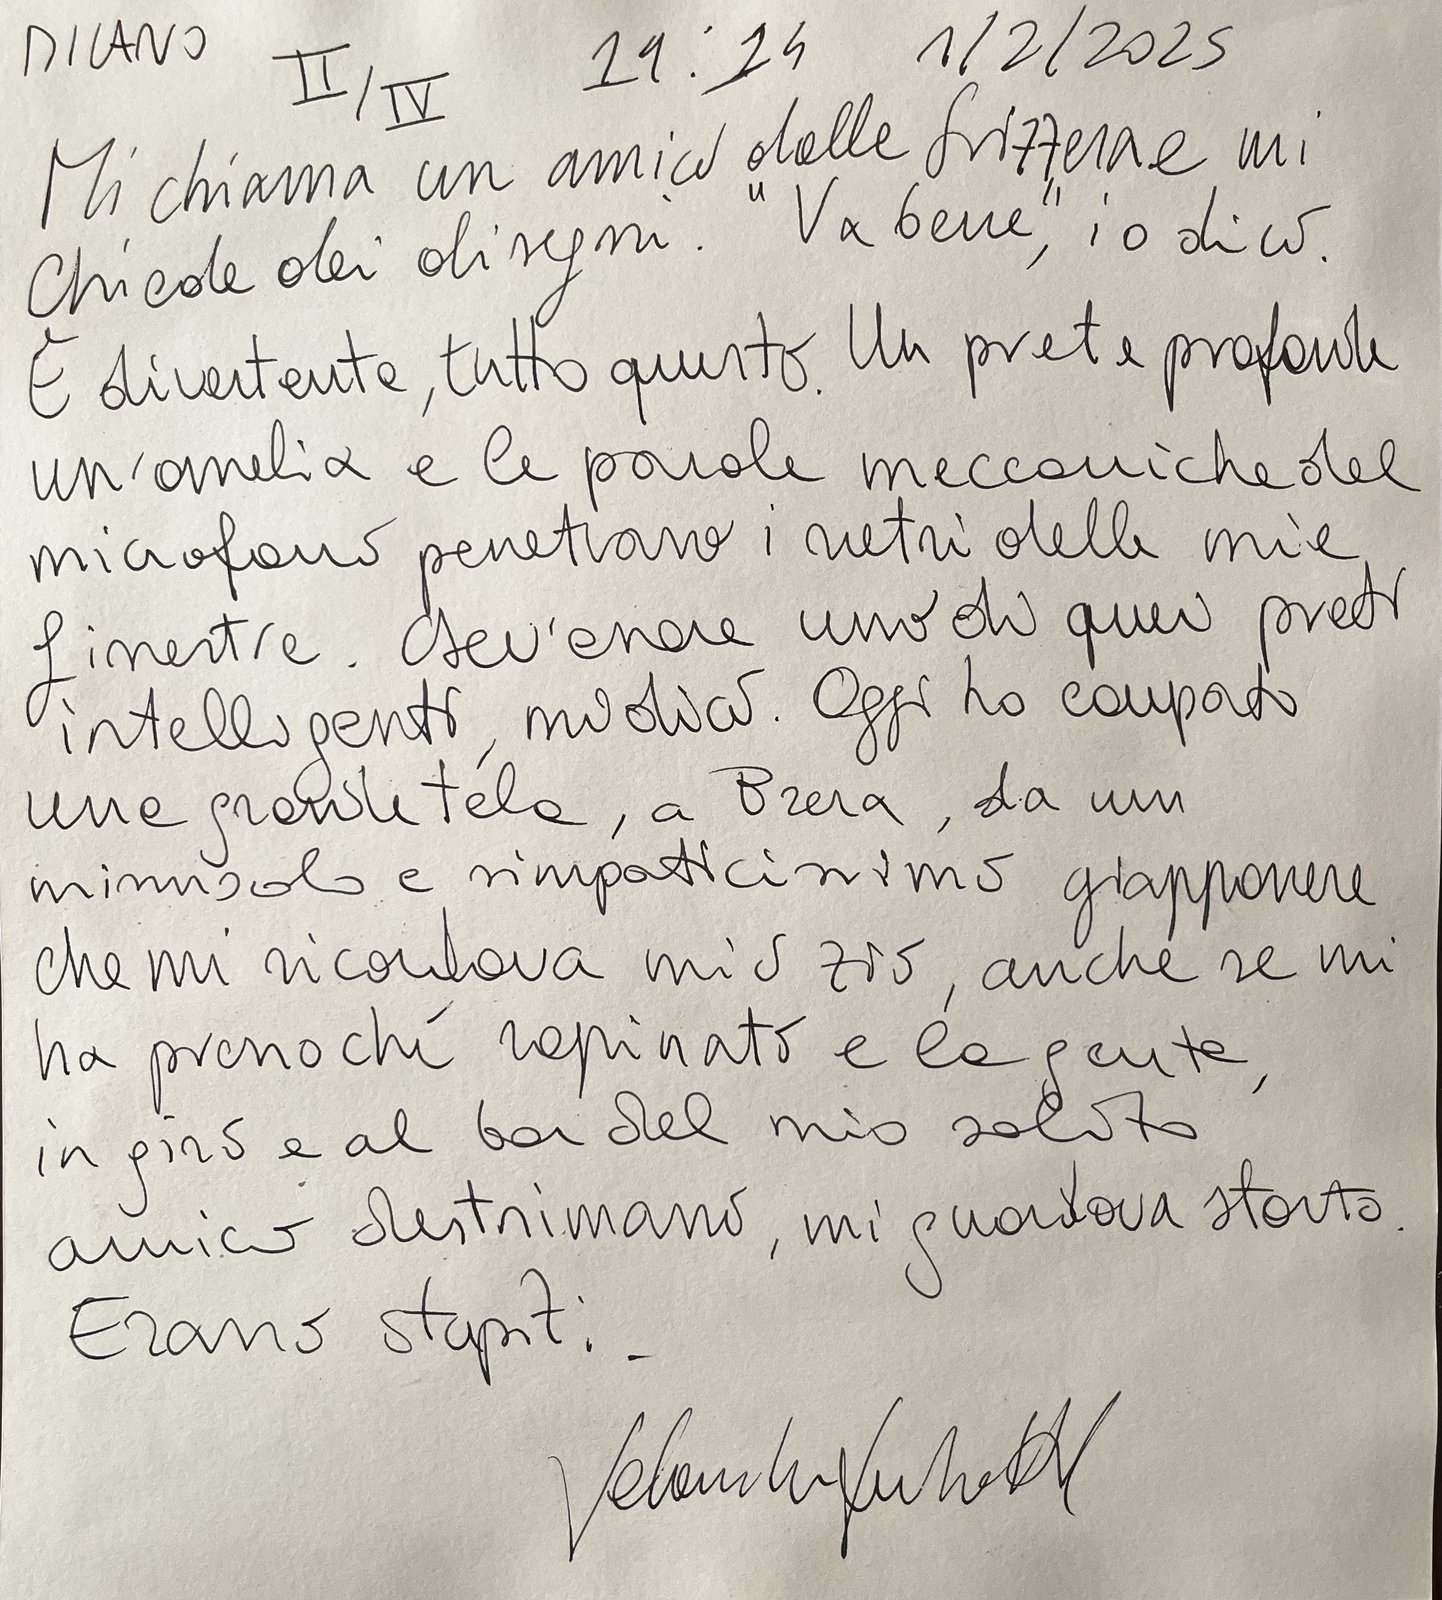 MILANO II/IV 19:24 1/2/2025
Mi chiama un amico dalla Svizzera e mi
chiede dei disegni. "Va bene", io dico.
È divertente, tutto questo. Un prete profonde
un'omelia e le parole meccaniche del
microfono penetrano i vetri delle mie
finestre. Dev'essere uno di quei preti
intelligenti, mi dico. Oggi ho comprato
una grande tela, a Brera, da un
minuscolo e simpaticissimo giapponese
che mi ricordava mio zio, anche se mi
ha pressoché rapinato e la gente,
in giro e al bar del mio solito
amico destrimano, mi guardava storto.
Erano stupiti.